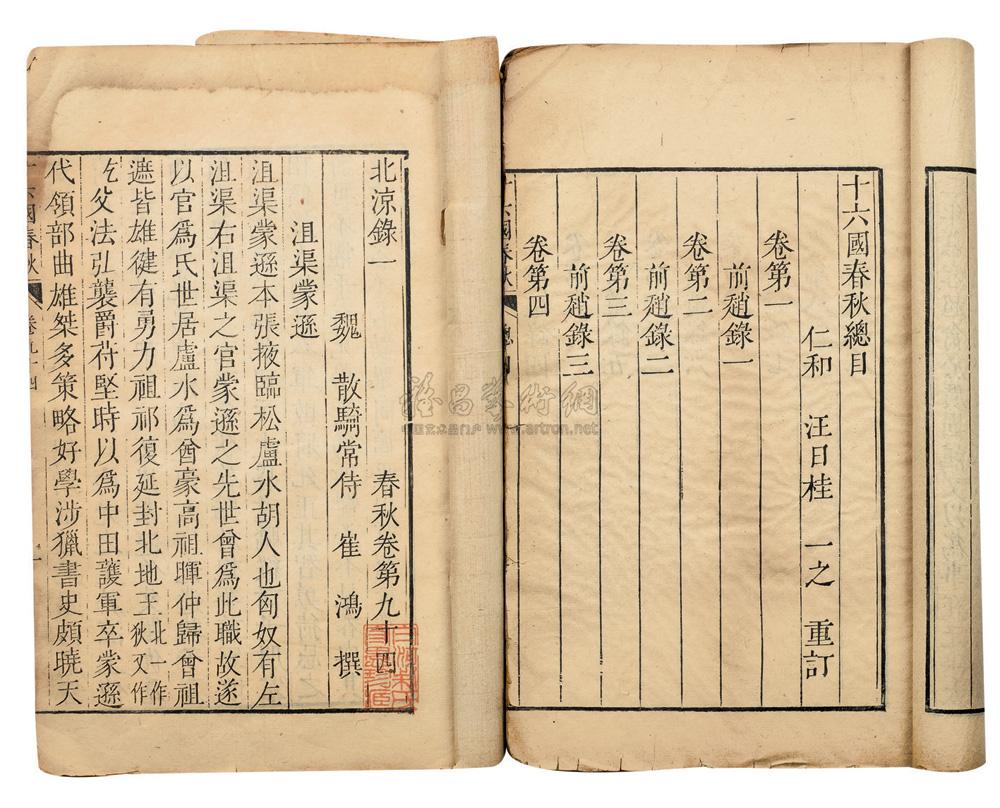 十六國春秋總目
仁和 汪日桂 一之 重訂
卷第一
前趙錄一
卷第二
前趙錄二
卷第三
前趙錄三
卷第四
六國春秋 總目
北涼錄一 春秋卷第九十四
魏 散騎常侍 崔鴻 撰
沮渠蒙遜
沮渠蒙遜本張掖臨松盧水胡人也匈奴有左
沮渠右沮渠之官蒙遜之先世曾爲此職故遂
以官爲氏世居盧水爲酋豪高祖暉仲歸曾祖
遮皆雄健有勇力祖祁復延封北地王北一作狄又作
父法弘襲爵苻堅時以爲中田護軍卒蒙遜
代領部曲雄桀多策略好學涉獵書史頗曉天
六國春秋 卷九十四
www.artron.net